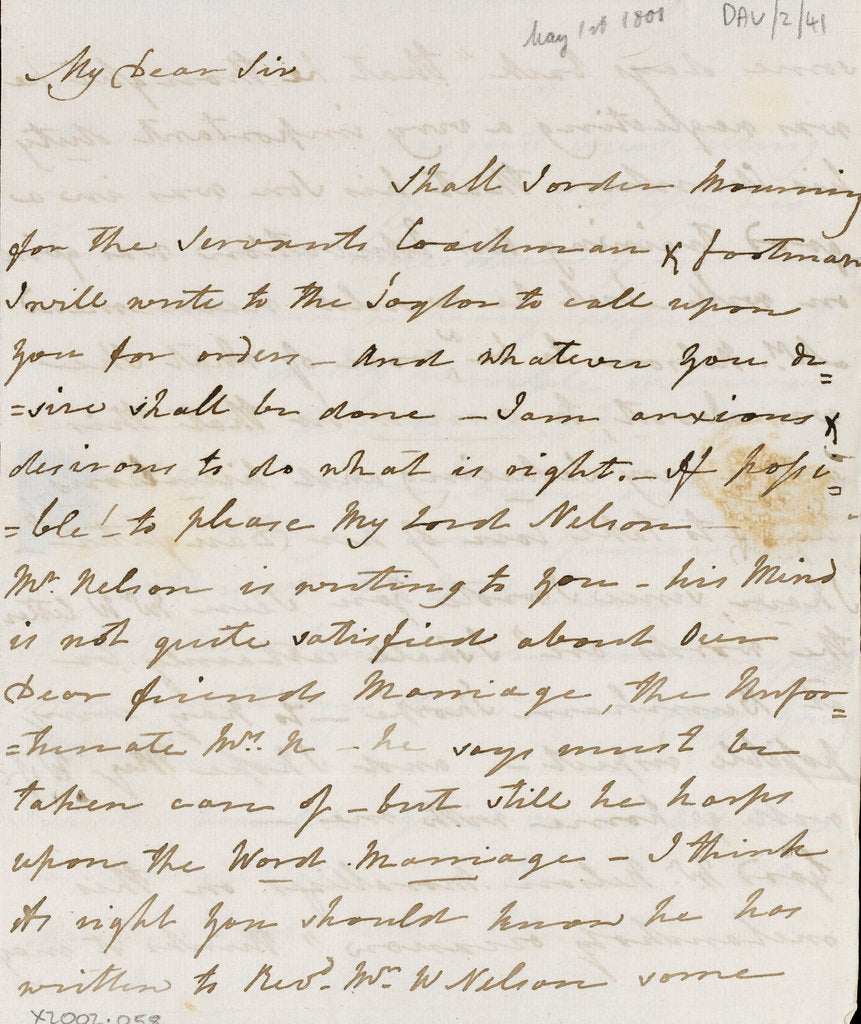 May 1st 1801
DAV/2/41
My Dear Sir
Shall I order Mourning
for the Servants Coachman & footman
I will write to the Taylor to call upon
you for orders - And whatever you de=
=sire shall be done - I am anxious &
desirous to do what is right. - If possi=
=ble! - to please My Lord Nelson -
Mr. Nelson is writing to you - his Mind
is not quite satisfied about Our
Dear friends Marriage, the Unfor=
=tunate Mrs. N - he says must be
taken care of - but still he harps
upon the Word Marriage - I think
it right you should know he has
written to Revd. Mr. W Nelson some
X2002.058